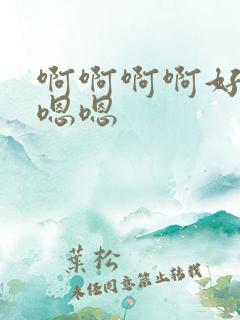 啊啊啊啊好
嗯嗯
葉松
未经同意禁止转载